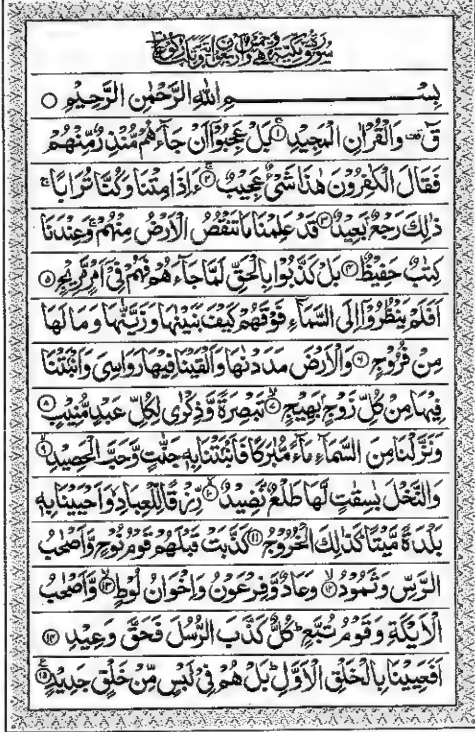 سُوْرَةُ قٓ مَكِّيَّةٌ وَّهِيَ خَمْسٌ وَّاَرْبَعُوْنَ اٰيَةً وَّثَلٰثُ رُكُوْعَاتٍ
بِسْــــــــــمِ اللهِ الرَّحْمٰنِ الرَّحِيْمِ ○
قٓ ۚ وَالْقُرْاٰنِ الْمَجِيْدِ ۝۱ بَلْ عَجِبُوْۤا اَنْ جَآءَهُمْ مُّنْذِرٌ مِّنْهُمْ
فَقَالَ الْكٰفِرُوْنَ هٰذَا شَىْءٌ عَجِيْبٌ ۝۲ ءَاِذَا مِتْنَا وَكُنَّا تُرَابًا ۚ
ذٰلِكَ رَجْعٌۢ بَعِيْدٌ ۝۳ قَدْ عَلِمْنَا مَا تَنْقُصُ الْاَرْضُ مِنْهُمْ ۚ وَعِنْدَنَا
كِتٰبٌ حَفِيْظٌ ۝۴ بَلْ كَذَّبُوْا بِالْحَقِّ لَمَّا جَآءَهُمْ فَهُمْ فِىْۤ اَمْرٍ مَّرِيْجٍ ۝۵
اَفَلَمْ يَنْظُرُوْۤا اِلَى السَّمَآءِ فَوْقَهُمْ كَيْفَ بَنَيْنٰهَا وَزَيَّنّٰهَا وَمَا لَهَا
مِنْ فُرُوْجٍ ۝۶ وَالْاَرْضَ مَدَدْنٰهَا وَاَلْقَيْنَا فِيْهَا رَوَاسِىَ وَاَنْۢبَتْنَا
فِيْهَا مِنْ كُلِّ زَوْجٍۢ بَهِيْجٍ ۝۷ تَبْصِرَةً وَّذِكْرٰى لِكُلِّ عَبْدٍ مُّنِيْبٍ ۝۸
وَنَزَّلْنَا مِنَ السَّمَآءِ مَآءً مُّبٰرَكًا فَاَنْۢبَتْنَا بِهٖ جَنّٰتٍ وَّحَبَّ الْحَصِيْدِ ۝۹
وَالنَّخْلَ بٰسِقٰتٍ لَّهَا طَلْعٌ نَّضِيْدٌ ۝۱۰ رِّزْقًا لِّلْعِبَادِ ۙ وَاَحْيَيْنَا بِهٖ
بَلْدَةً مَّيْتًا ؕ كَذٰلِكَ الْخُرُوْجُ ۝۱۱ كَذَّبَتْ قَبْلَهُمْ قَوْمُ نُوْحٍ وَّاَصْحٰبُ
الرَّسِّ وَثَمُوْدُ ۝۱۲ وَعَادٌ وَّفِرْعَوْنُ وَاِخْوَانُ لُوْطٍ ۝۱۳ وَّاَصْحٰبُ
الْاَيْكَةِ وَقَوْمُ تُبَّعٍ ؕ كُلٌّ كَذَّبَ الرُّسُلَ فَحَقَّ وَعِيْدِ ۝۱۴
اَفَعَيِيْنَا بِالْخَلْقِ الْاَوَّلِ ؕ بَلْ هُمْ فِىْ لَبْسٍ مِّنْ خَلْقٍ جَدِيْدٍ ۝۱۵